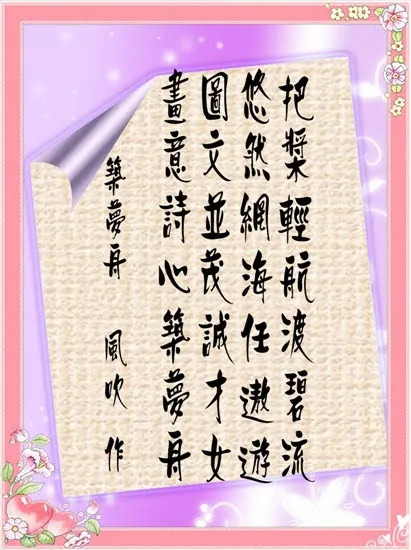 把槳輕航渡碧流
悠然網海任遨遊
圖文並茂誠才女
畫意詩心築夢舟
築夢舟 風吹作